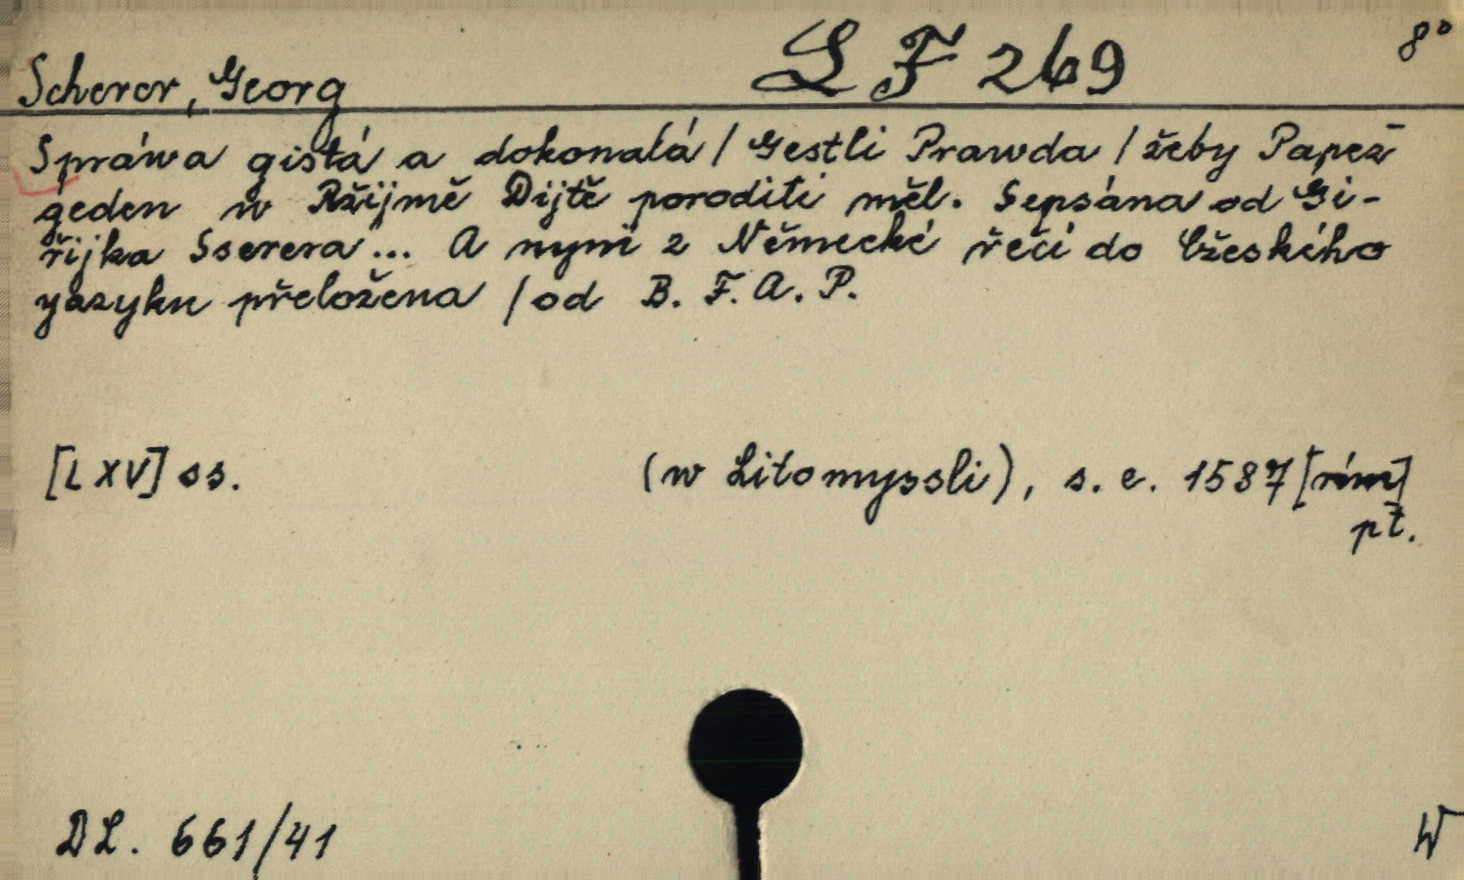 Scherer, Georg
L F 269
8°
Spráwa gistá a dokonalá / Gestli Prawda / žeby Papež
geden w Ržijmě Dijtě poroditi měl. Sepsána od Gi-
řijka Sserera... A nyní z Německé řeči do Čžeského
yazyku přeložena / od B. F. A. P.
[LXV] ss.
(w Litomyssli), s. e. 1587 [rím]
pt.
DL. 661/41
W